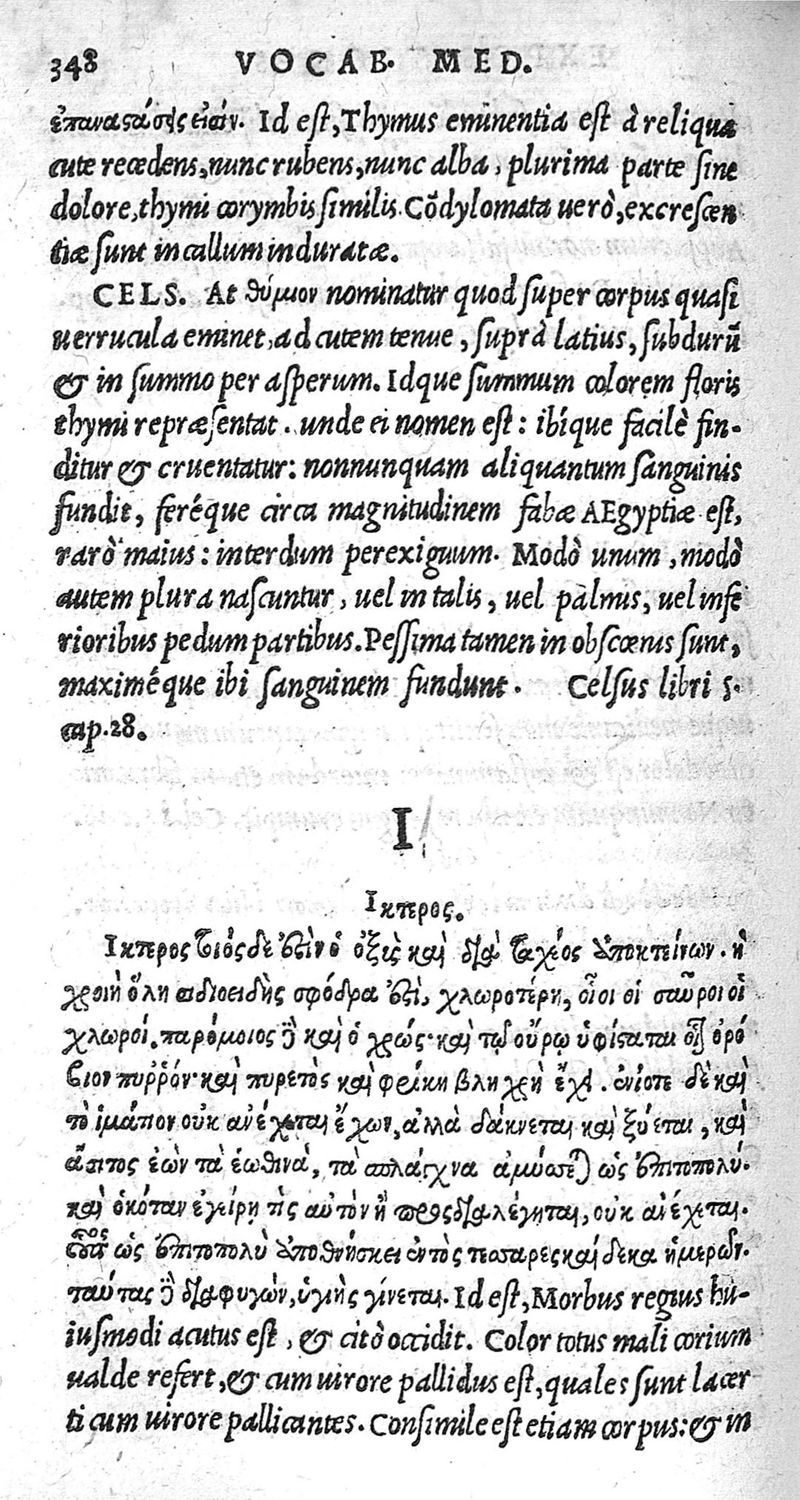 348 VOCAB. MED.
ἐπαναστάσιές εἰσίν. Id est, Thymus eminentia est à reliqua
cute recedens, nunc rubens, nunc alba, plurima parte sine
dolore, thymi corymbis similis. Cõdylomata uerò, excrescen
tiæ sunt in callum induratæ.
CELS. At θύμιον nominatur quod super corpus quasi
uerrucula eminet, ad cutem tenue, suprà latius, subdurũ
& in summo per asperum. Idque summum colorem floris
thymi repræsentat. unde ei nomen est: ibíque facilè fin-
ditur & cruentatur: nonnunquam aliquantum sanguinis
fundit, feréque circa magnitudinem fabæ AEgyptiæ est,
rarò maius: interdum perexiguum. Modò unum, modò
autem plura nascuntur, uel in talis, uel palmis, uel infe
rioribus pedum partibus. Pessima tamen in obscœnis sunt,
maximéque ibi sanguinem fundunt. Celsus libri 5.
cap. 28.
I
Ικτερος.
Ικτερος τιὸς δέ ἐστιν ὁ ὀξὺς καὶ διὰ ταχέος ἀποκτείνων. ἡ
χροιὴ ὅλη σιδιοειδὴς σφόδρα ἐστὶ, χλωροτέρη, οἷοι οἱ σαῦροι οἱ
χλωροί. παρόμοιος δὲ καὶ ὁ χρώς· καὶ τῷ οὔρῳ ὑφίσταται οἷον ὀρό
βιον πυῤῥόν· καὶ πυρετὸς καὶ φρίκη βληχρὴ ἔχει. ἐνίοτε δὲ καὶ
τὸ ἱμάτιον οὐκ ἀνέχεται ἔχων, ἀλλὰ δάκνεται καὶ ξύεται, καὶ
ἄσιτος ἐὼν τὰ ἑωθινὰ, τὰ σπλάγχνα ἀμύσσεται ὡς ἐπιτοπολύ.
καὶ ὁκόταν ἐγείρῃ τὶς αὐτὸν ἢ προσδιαλέγηται, οὐκ ἀνέχεται.
οὗτος ὡς ἐπιτοπολὺ ἀποθνήσκει ἐντὸς τεσσαρεςκαίδεκα ἡμερῶν.
ταύτας δὲ διαφυγὼν, ὑγιὴς γίνεται. Id est, Morbus regius hu-
iusmodi acutus est, & citò occidit. Color totus mali corium
ualde refert, & cum uirore pallidus est, quales sunt lacer
ti cum uirore pallicantes. Consimile est etiam corpus: & in